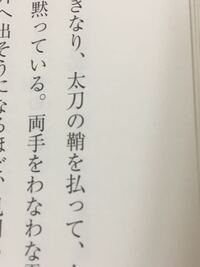 きなり、太刀の鞘を払って、
黙っている。両手をわなわな
へ出そうになるほど、見開